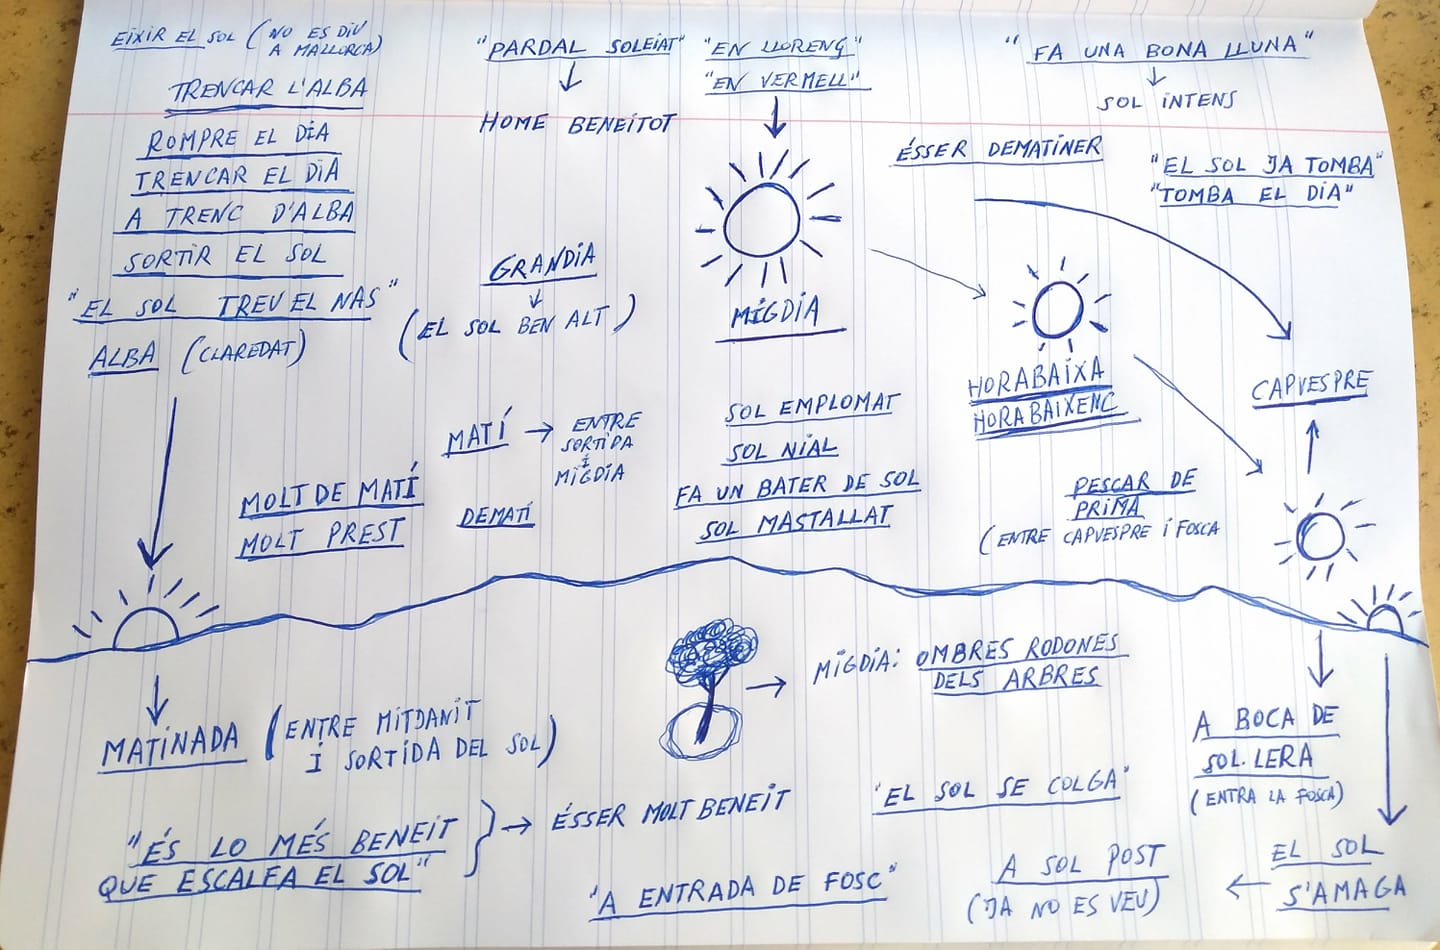 EIXIR EL SOL (NO ES DIU
A MALLORCA)
TRENCAR L'ALBA
ROMPRE EL DIA
TRENCAR EL DIA
A TRENC D'ALBA
SORTIR EL SOL
"EL SOL TREU EL NAS"
ALBA (CLAREDAT)
"PARDAL SOLEIAT"
HOME BENEITOT
"EN LLORENÇ"
"EN VERMELL"
"FA UNA BONA LLUNA"
SOL INTENS
ÉSSER DEMATINER
"EL SOL JA TOMBA"
"TOMBA EL DIA"
GRANDIA
(EL SOL BEN ALT)
MIGDIA
HORABAIXA
HORABAIXENC
CAPVESPRE
MATÍ → ENTRE
SORTIDA
I
MIGDIA
MOLT DE MATÍ
MOLT PREST
DEMATÍ
SOL EMPLOMAT
SOL NIAL
FA UN BATER DE SOL
SOL MASTALLAT
PESCAR DE
PRIMA
(ENTRE CAPVESPRE I FOSCA
MATINADA (ENTRE MITDANIT
I SORTIDA DEL SOL)
MIGDIA: OMBRES RODONES
DELS ARBRES
A BOCA DE
SOL·LERA
(ENTRA LA FOSCA)
"EL SOL SE COLGA"
"ÉS LO MÉS BENEIT
QUE ESCALFA EL SOL"
→ ÉSSER MOLT BENEIT
"A ENTRADA DE FOSC"
A SOL POST
(JA NO ES VEU)
EL SOL
S'AMAGA